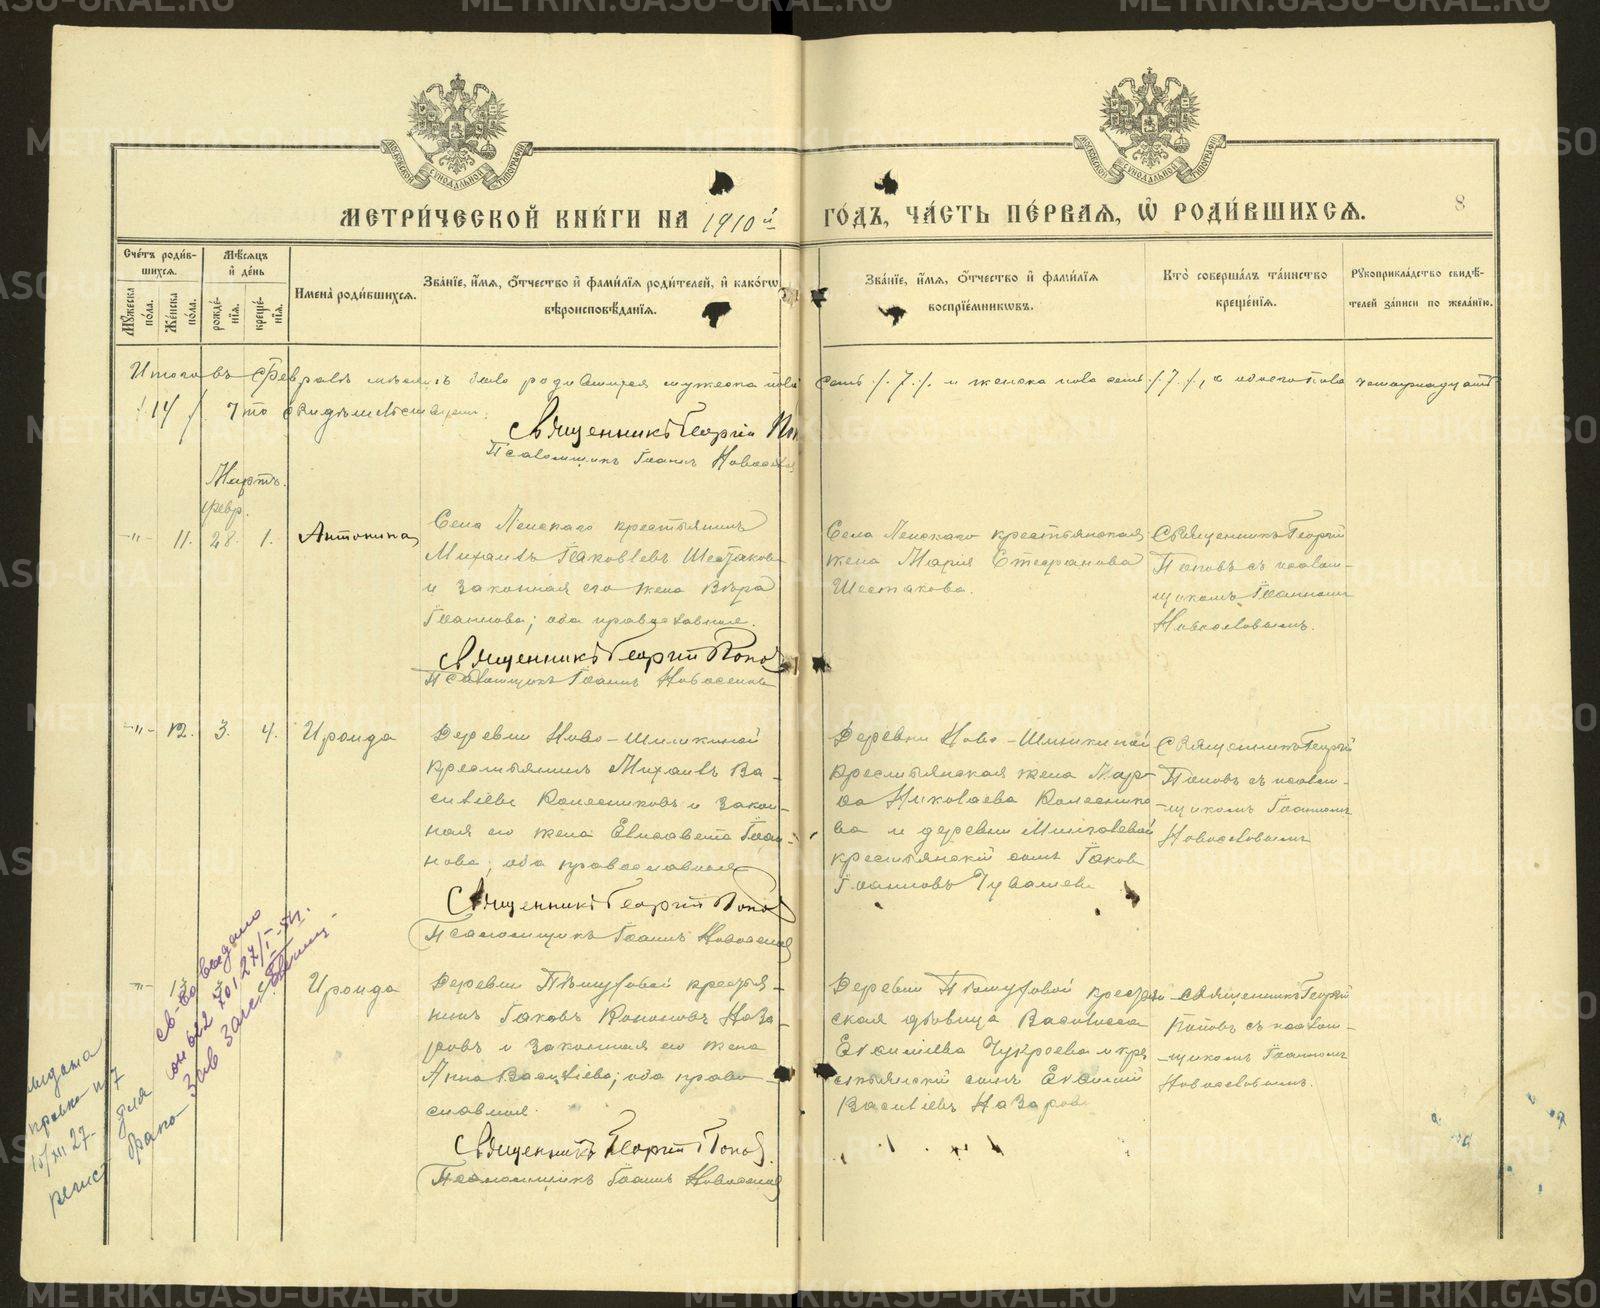 МЕТРИ́ЧЕСКОЙ КНИ́ГИ НА 1910й ГО́ДЪ, ЧА́СТЬ ПЕ́РВАѦ, Ѡ҆ РОДИ́ВШИХСѦ.
8
Сче́тъ роди́вшихсѧ.
Мѣ́сѧцъ и҆ де́нь
Мꙋ́жеска по́ла.
Же́нска по́ла.
рожде́нїѧ.
креще́нїѧ.
Имена̀ роди́вшихсѧ.
Зва́нїе, и҆́мѧ, ѻ҆́тчество и҆ фами́лїѧ роди́телей, и҆ како́гѡ
вѣроисповѣ́данїѧ.
Зва́нїе, и҆́мѧ, ѻ҆́тчество и҆ фами́лїѧ
воспрїе́мникѡвъ.
Кто̀ соверша́лъ та́инство
креще́нїѧ.
Рꙋкоприкла́дство свидѣ́-
телей за́писи по жела́нїю.
Итого въ Февралѣ мѣсяцѣ было родившихся мужеска пола семь /7/ и женска пола семь /7/, а обоего пола четырнадцать
/14/ Что свидѣтельствуемъ:
Священникъ Георгій
Псаломщикъ Іоаннъ
Мартъ.
февр.
-"- 11. 28. 1. Антонина
Села Ленскаго крестьянинъ
Михаилъ Іаковлевъ Шестаковъ
и законная его жена Вѣра
Іоаннова; оба православные.
Священникъ Георгій Поповъ
Псаломщикъ Іоаннъ Новоселовъ
Села Ленскаго крестьянская
жена Марія Стефанова
Шестакова.
Священникъ Георгій
Поповъ съ псалом-
щикомъ Іоанномъ
Новоселовымъ.
-"- 12. 3. 4. Ироида
Деревни Ново-Шишкиной
крестьянинъ Михаилъ Ва-
сильевъ Колесниковъ и закон-
ная его жена Елисавета Іоан-
нова; оба православные
Священникъ Георгій Поповъ
Псаломщикъ Іоаннъ Новоселовъ
Деревни Ново-Шишкиной
крестьянская жена Мар-
ѳа Николаева Колеснико-
ва и деревни
крестьянскій сынъ Іаковъ
Іоанновъ Чувашевъ
Священникъ Георгій
Поповъ съ псалом-
щикомъ Іоанномъ
Новоселовымъ
-"- 13. 3. 4. Ироида
Деревни крестья-
нинъ Іаковъ Назаровъ
и законная его жена
Анна Васильева; оба право-
славные.
Священникъ Георгій Поповъ.
Псаломщикъ Іоаннъ Новоселовъ
Деревни крестьян-
ская дѣвица Василисса
и кре-
стьянскій сынъ
Васильевъ Назаровъ
Священникъ Георгій
Поповъ съ псалом-
щикомъ Іоанномъ
Новоселовымъ.
св-во выдано
27/I
Зав Загс
выдана
15/XII 27
для
регист брака
METRIKI.GASO-URAL.RU